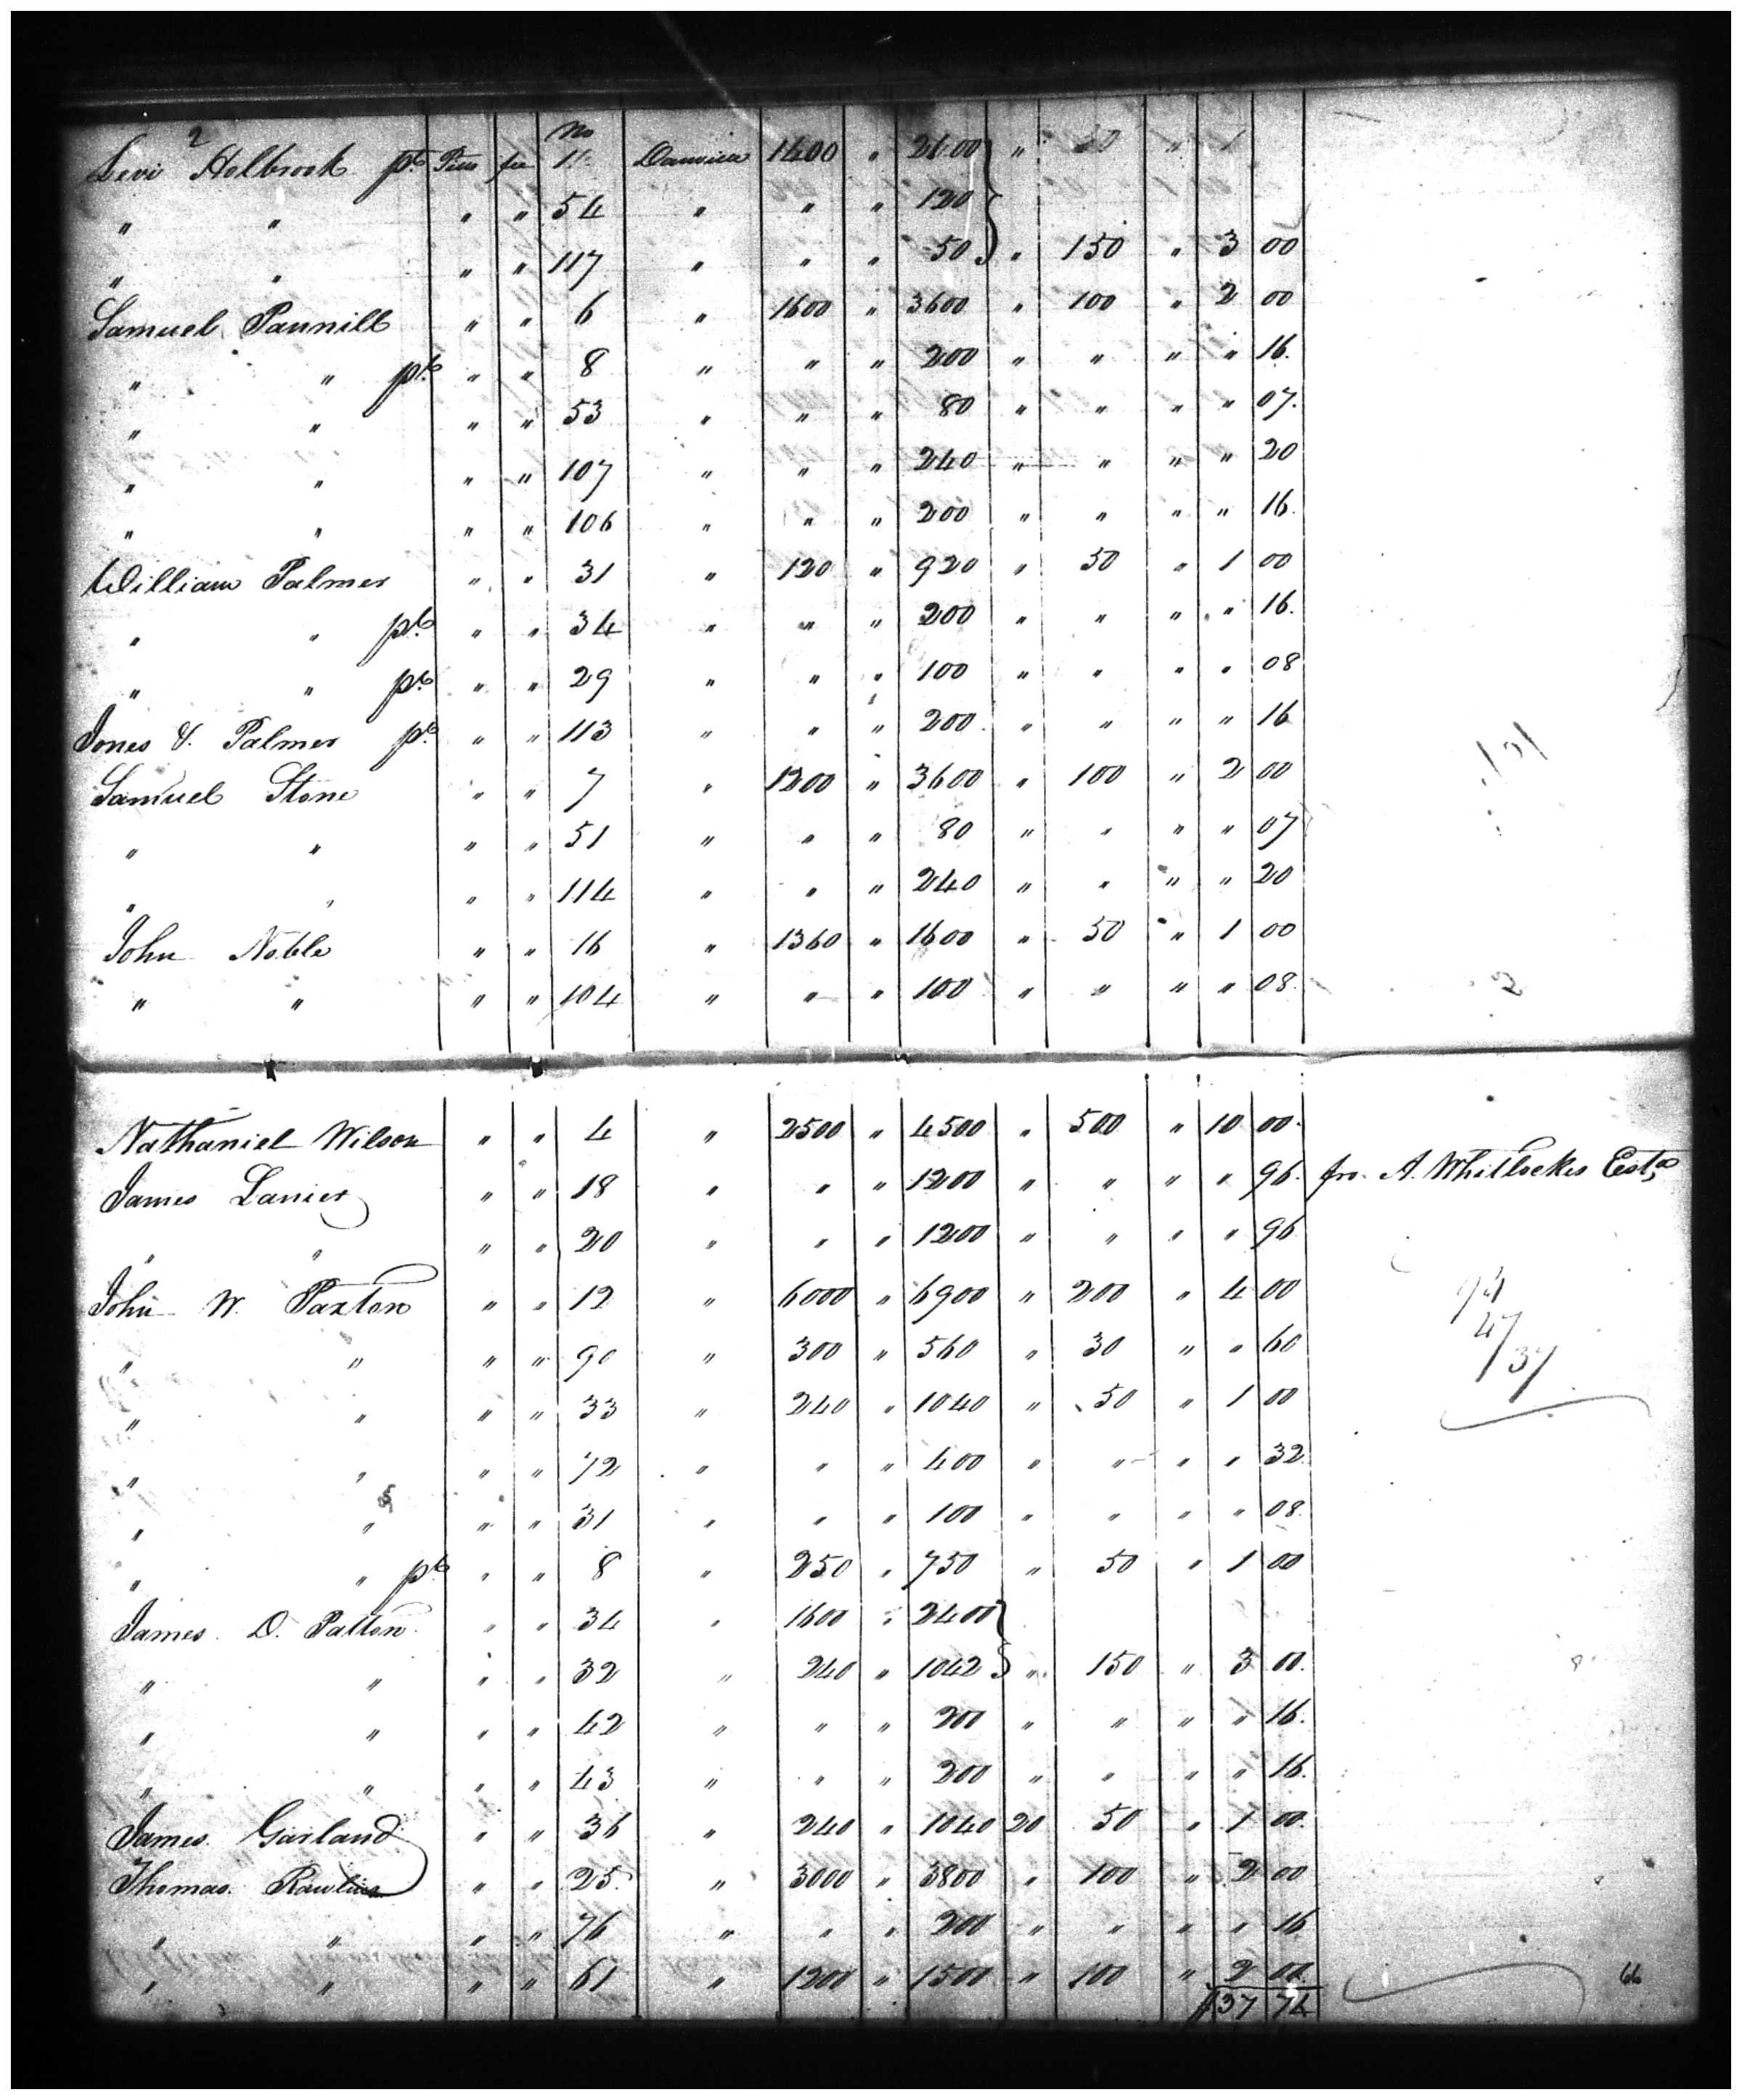 2
Levi Holbrook pt. Pitts fee No 11 Danville 1400 " 2600 } "
" " " " 54 " " " 120
" " " " 117 " " " 50 } " 150 " 3 00
Samuel Pannill " " 6 " 1600 " 3600 " 100 " 2 00
" " pt. " " 8 " " " 200 " " " " 16.
" " " " 53 " " " 80 " " " " 07.
" " " " 107 " " " 240 " " " " 20
" " " " 106 " " " 200 " " " " 16.
William Palmer " " 31 " 120 " 920 " 50 " 1 00
" " pt. " " 34 " " " 200 " " " " 16.
" " pt. " " 29 " " " 100 " " " " 08
Jones & Palmer pt. " " 113 " " " 200 " " " " 16
Samuel Stone " " 7 " 1200 " 3600 " 100 " 2 00
" " " " 51 " " " 80 " " " " 07
" " " " 114 " " " 240 " " " " 20
John Noble " " 16 " 1360 " 1600 " 50 " 1 00
" " " " 104 " " " 100 " " " " 08.
Nathaniel Wilson " " 4 " 2500 " 4500 " 500 " 10 00.
James Lanier " " 18 " " " 1200 " " " " 96. fro. A. Whitlockes Esta
" " " " 20 " " " 1200 " " " " 96
John W. Paxton " " 12 " 6000 " 6900 " 200 " 4 00
" " " " 90 " 300 " 560 " 30 " " 60
47
37
" " " " 33 " 240 " 1040 " 50 " 1 00
" " " " 72 " " " 400 " " " " 32
" " " " 31 " " " 100 " " " " 08.
" " pt. " " 8 " 250 " 750 " 50 " 1 00
James D. Patton " " 34 " 1600 " 2400 }
" " " " 32 " 240 " 1042 } " 150 " 3 00.
" " " " 42 " " " 200 " " " " 16.
" " " " 43 " " " 200 " " " " 16.
James Garland " " 36 " 240 " 1040 20 50 " 1 00.
Thomas Rawlins " " 25. " 3000 " 3800 " 100 " 2 00
" " " " 76 " " " 200 " " " " 16
" " " " 61 " 1200 " 1500 " 100 " 2 00.
$37 74
66